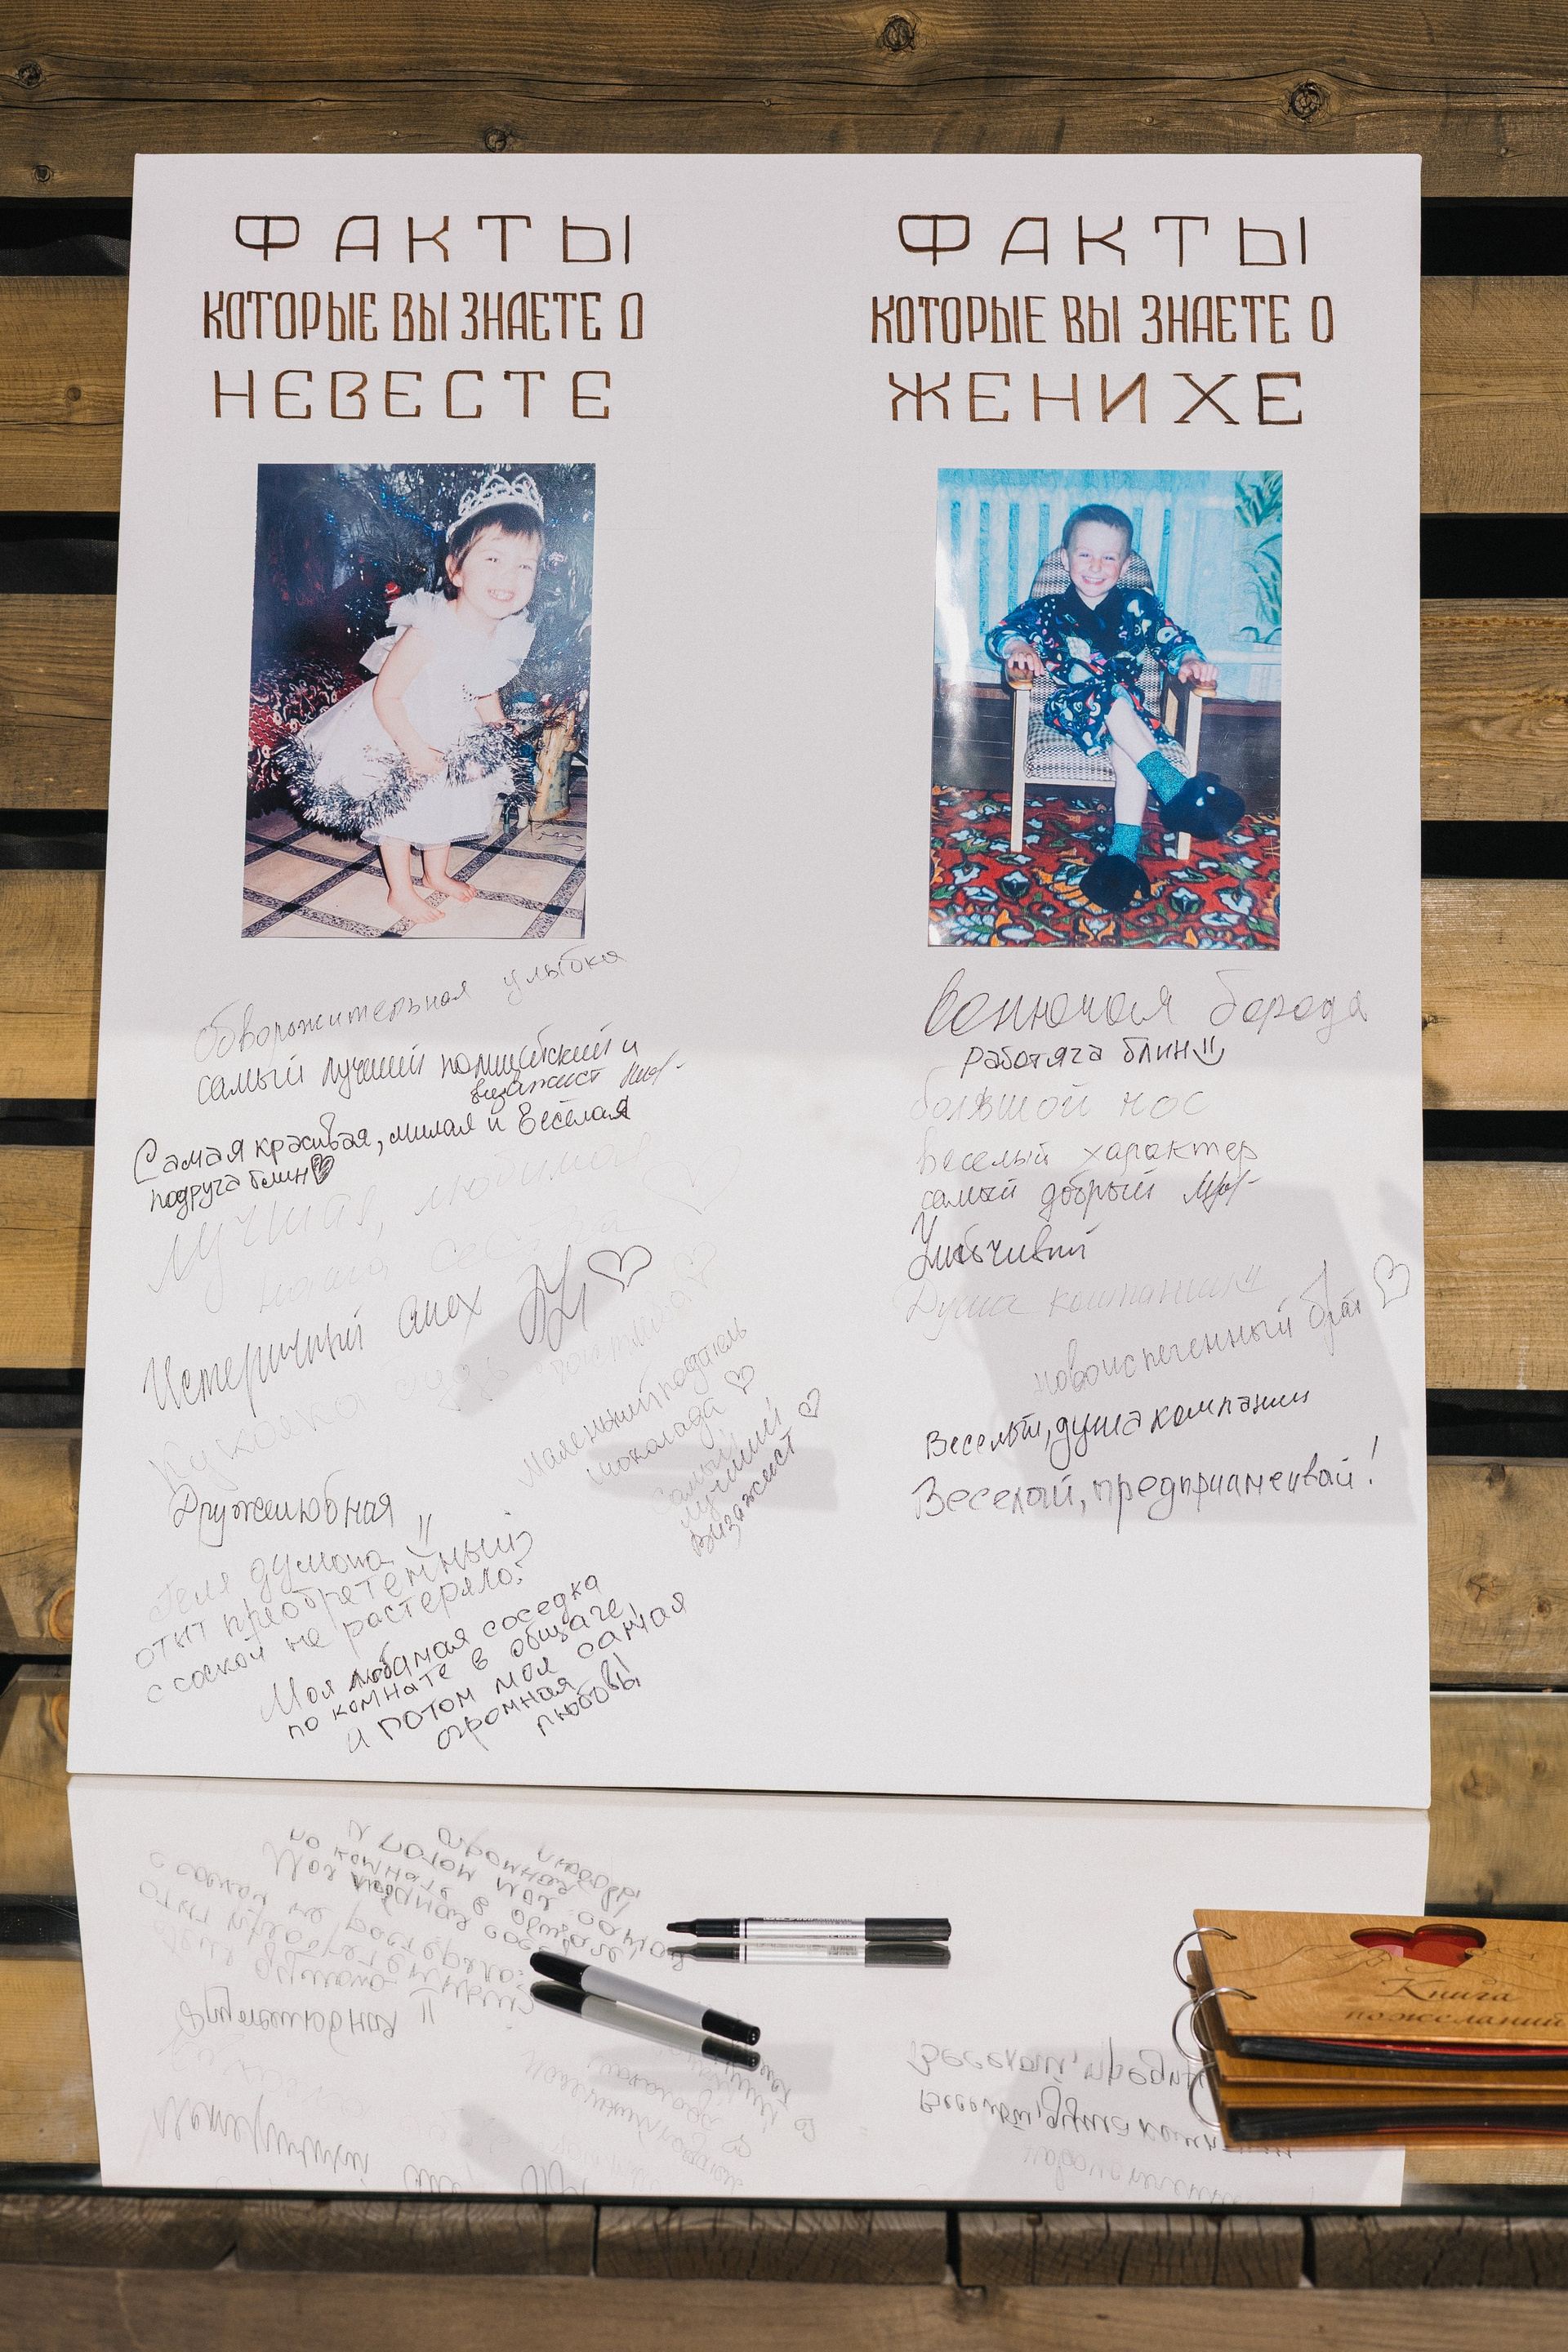 ФАКТЫ
КОТОРЫЕ ВЫ ЗНАЕТЕ О
НЕВЕСТЕ
обворожительная улыбка
самый лучший полицейский и
визажист
Самая красивая, милая и весёлая
подруга блин
лучшая, любимая
наша сестра
Истеричный смех
Маленький поедатель
шоколада
самый
лучший
визажист
Дружелюбная
Геля думала
опыт приобретенный
с соской не растеряла?
Моя любимая соседка
по комнате в общаге,
и потом моя самая
огромная
любовь!
ФАКТЫ
КОТОРЫЕ ВЫ ЗНАЕТЕ О
ЖЕНИХЕ
борода
Работяга блин
большой нос
веселый характер
самый добрый
Улыбчивый
Душа компании
новоиспеченный брат
Веселый, душа компании
Веселый, предприимчивый!
Книга
пожеланий